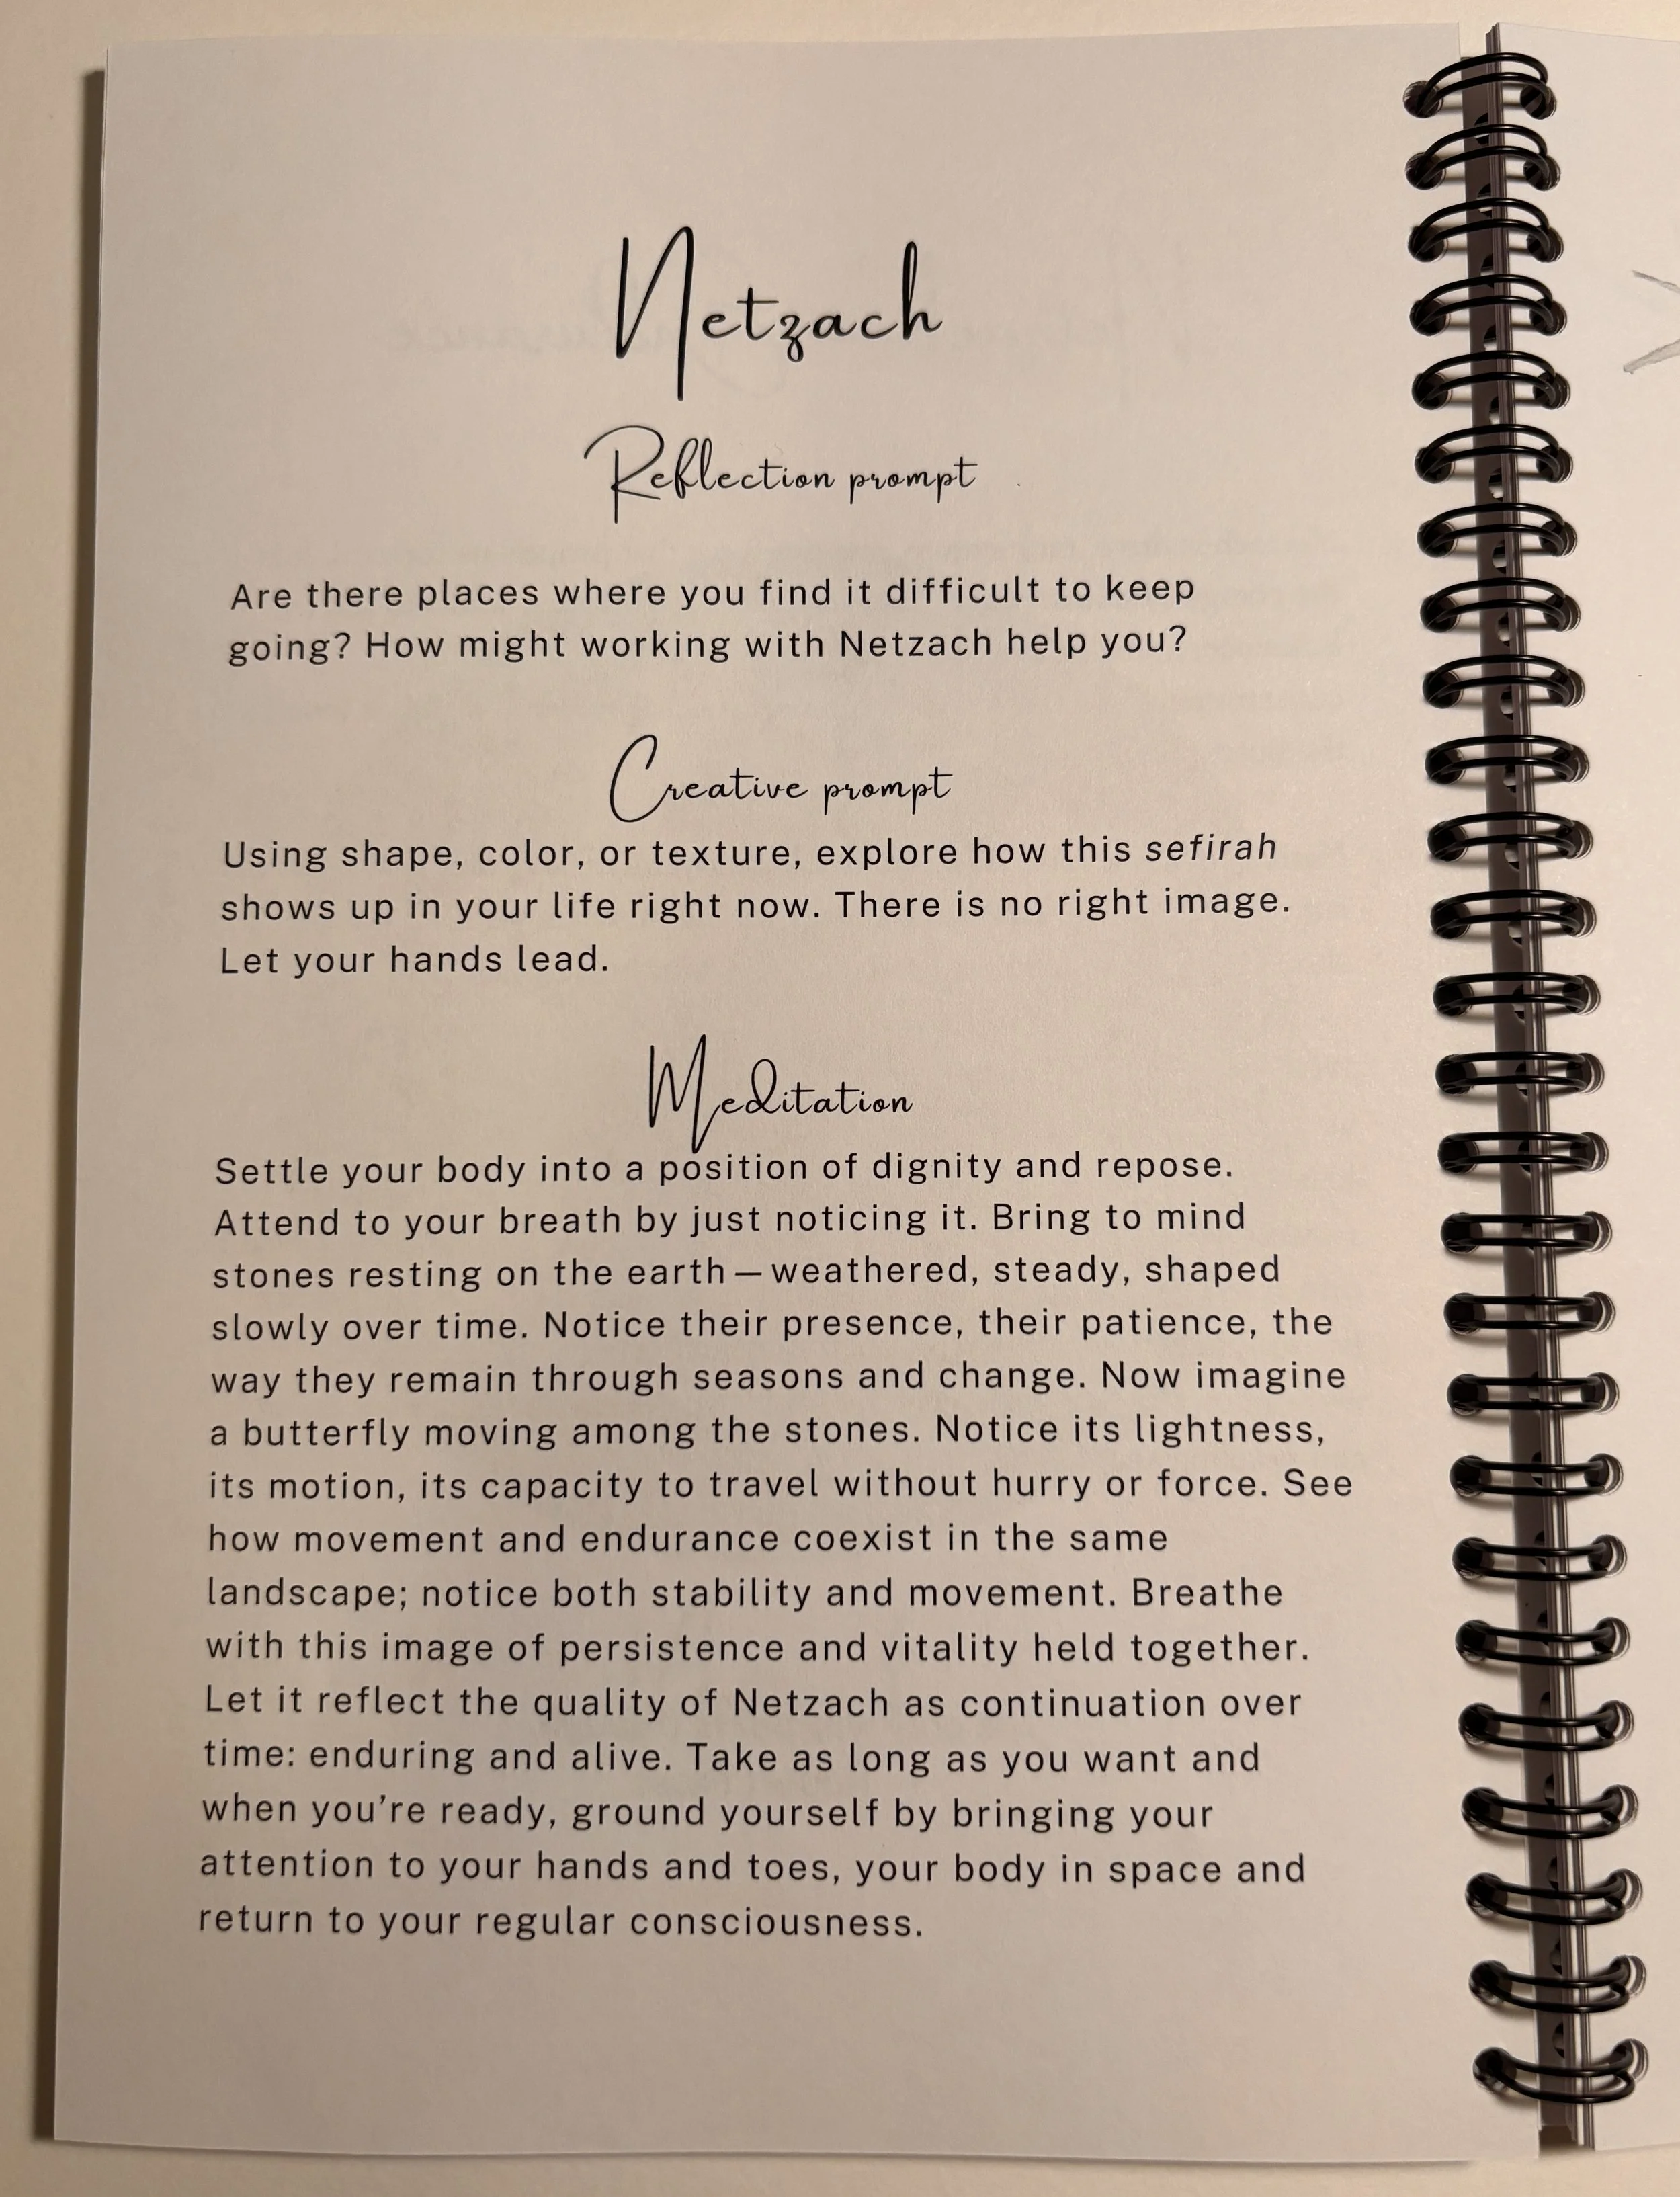 Netzach
Reflection prompt
Are there places where you find it difficult to keep
going? How might working with Netzach help you?
Creative prompt
Using shape, color, or texture, explore how this sefirah
shows up in your life right now. There is no right image.
Let your hands lead.
Meditation
Settle your body into a position of dignity and repose.
Attend to your breath by just noticing it. Bring to mind
stones resting on the earth—weathered, steady, shaped
slowly over time. Notice their presence, their patience, the
way they remain through seasons and change. Now imagine
a butterfly moving among the stones. Notice its lightness,
its motion, its capacity to travel without hurry or force. See
how movement and endurance coexist in the same
landscape; notice both stability and movement. Breathe
with this image of persistence and vitality held together.
Let it reflect the quality of Netzach as continuation over
time: enduring and alive. Take as long as you want and
when you're ready, ground yourself by bringing your
attention to your hands and toes, your body in space and
return to your regular consciousness.